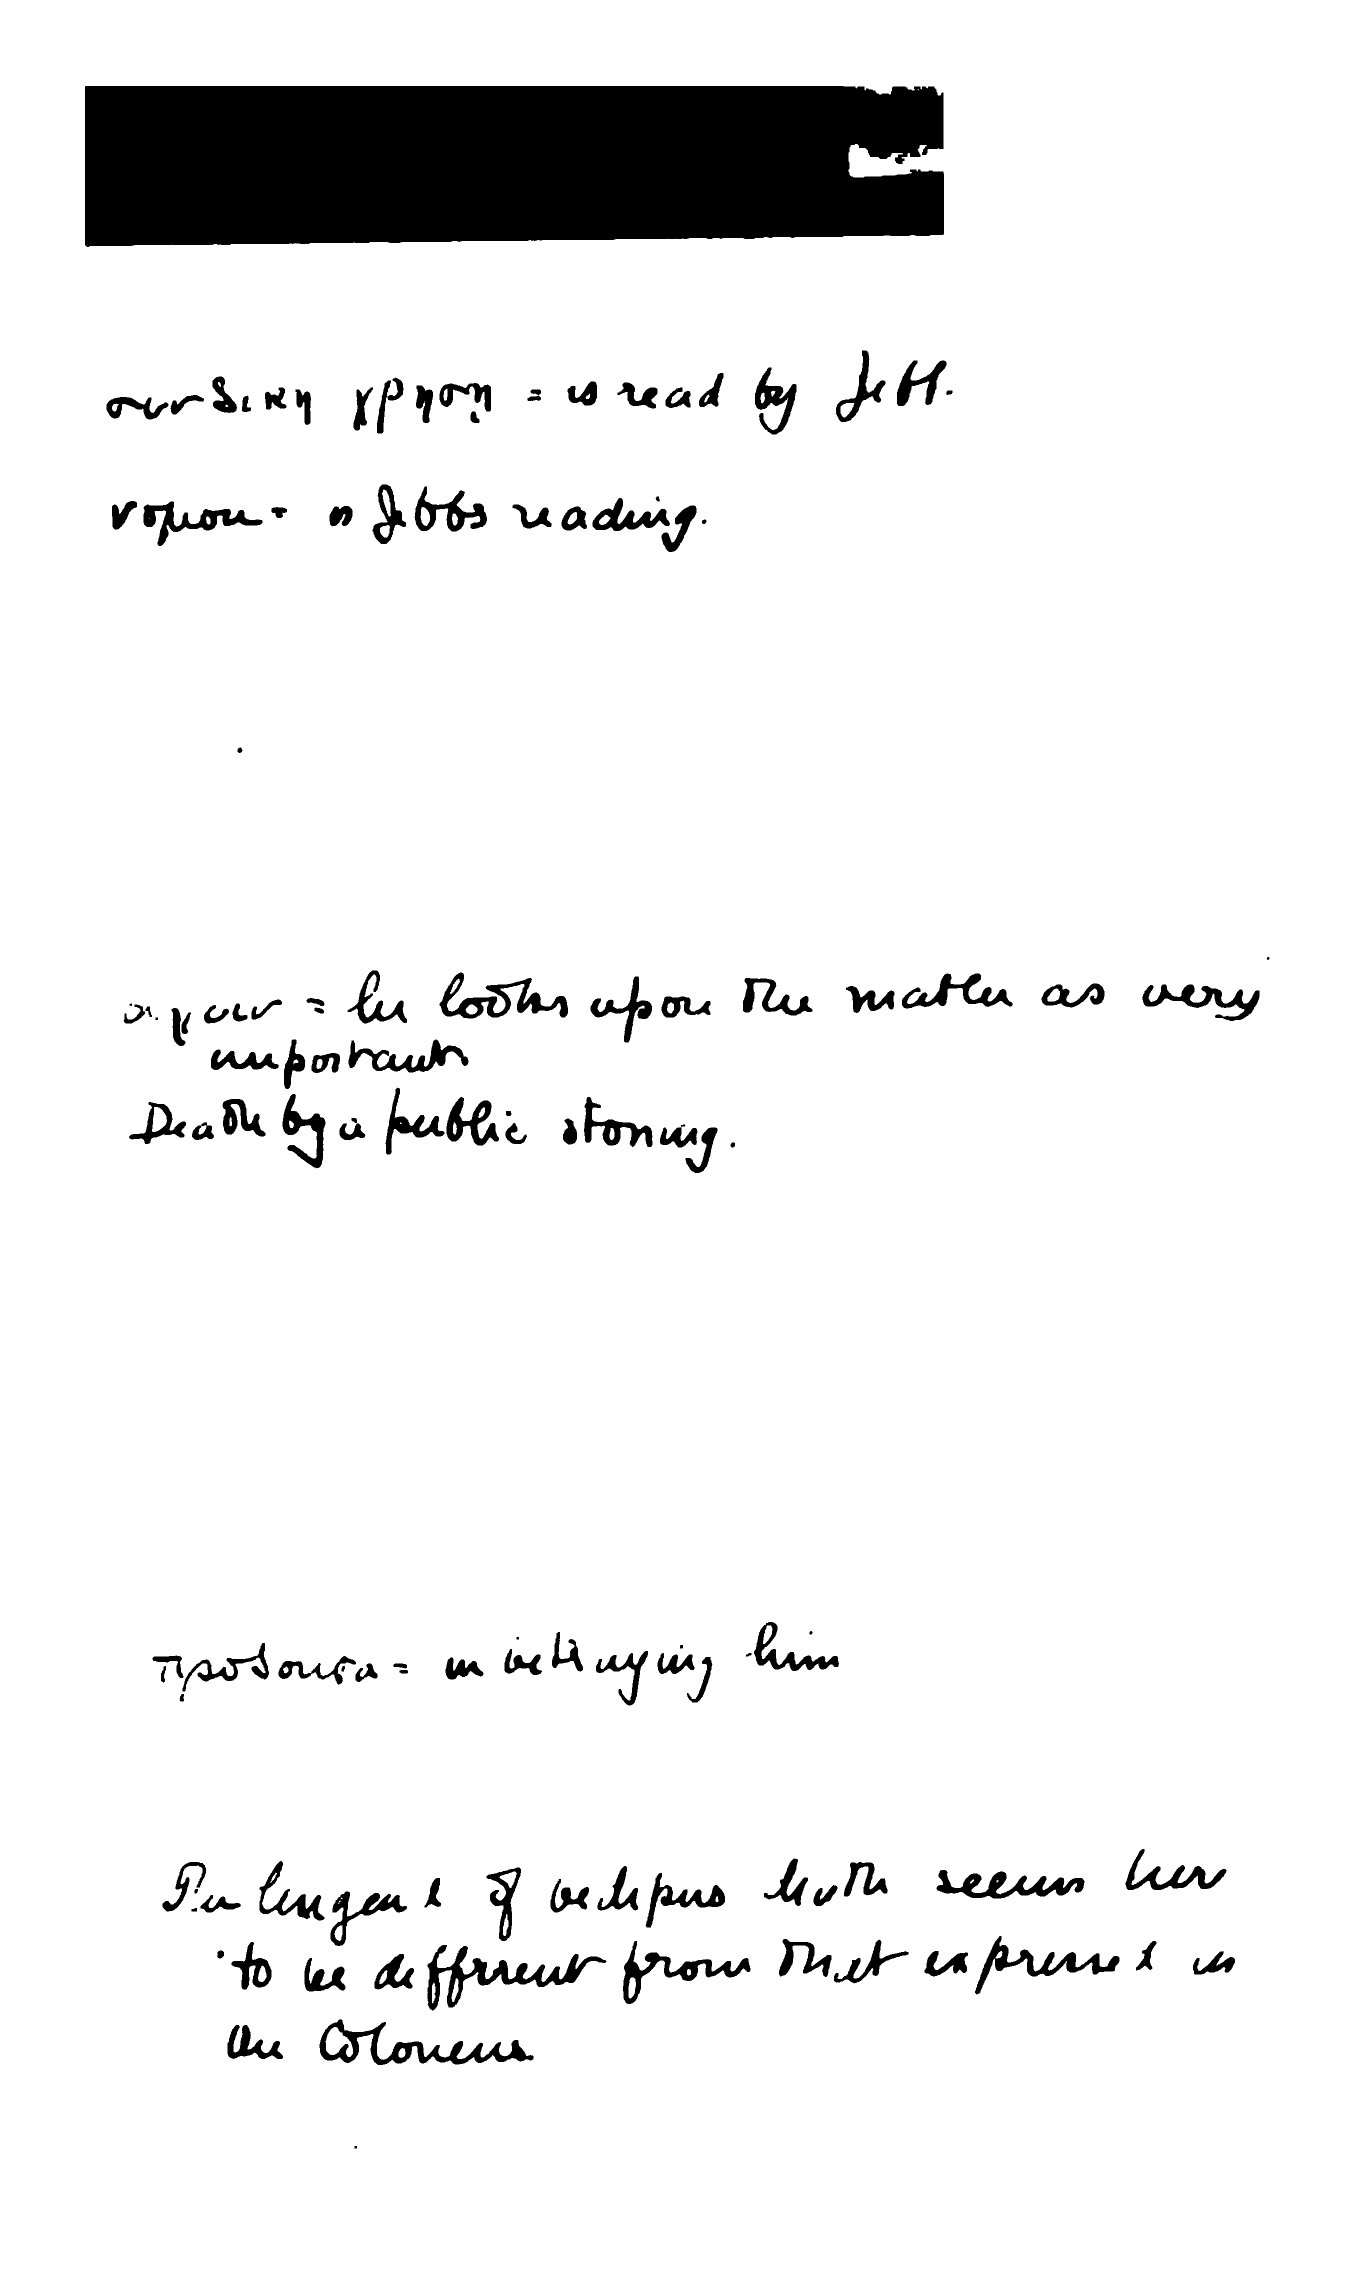 συν δικη χρηση = is read by Jebb.
νομου = is Jebbs reading.
αγειν = he looks upon the matter as very
important
Death by a public stoning.
προδουσα = in betraying him
The of oedipus death seems here
to be different from that expressed in
the Coloneus